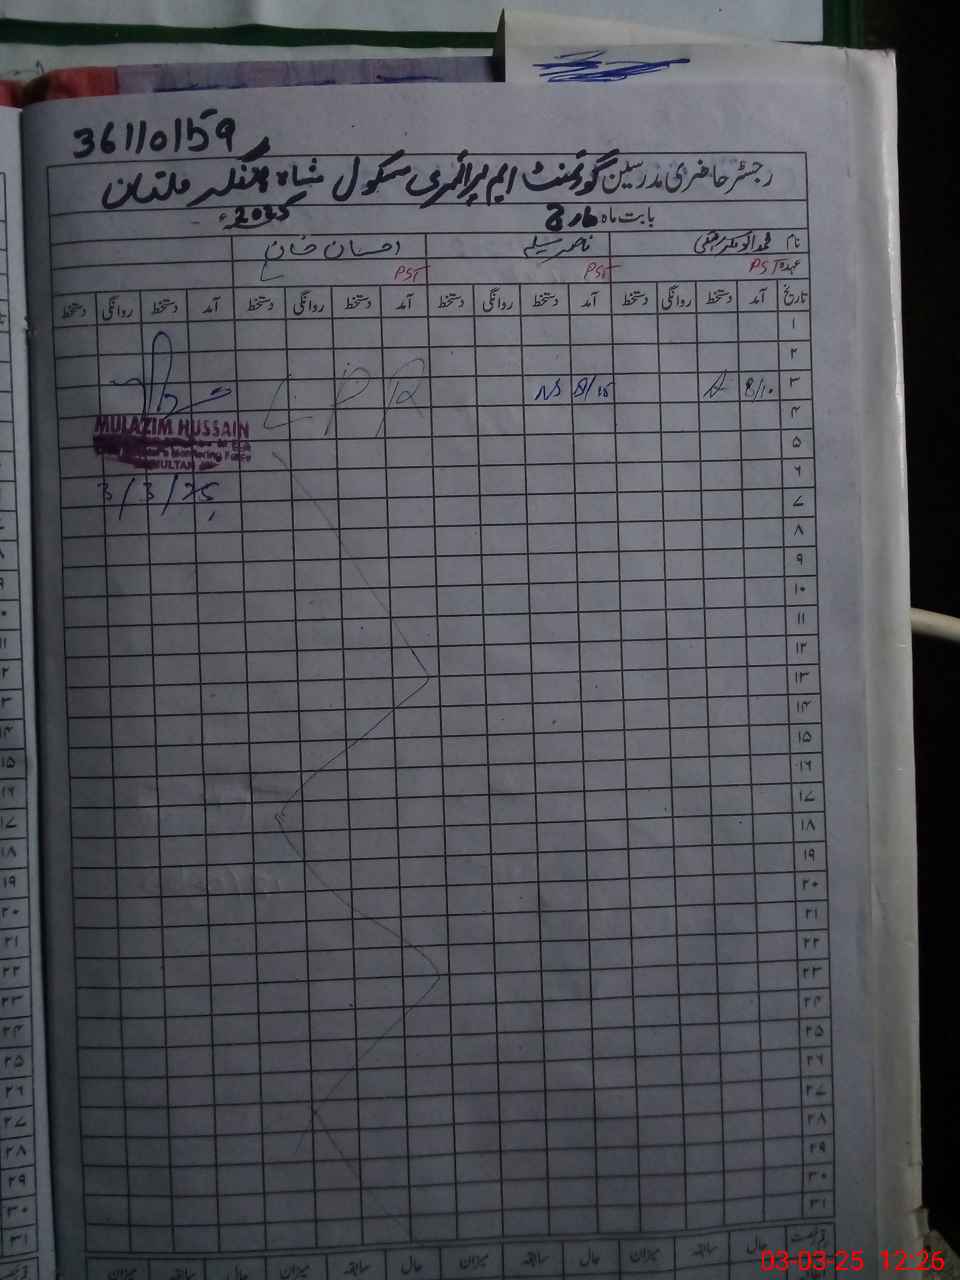 36110159
رجسٹر حاضری مدرسین گورنمنٹ ایم پرائمری سکول شاہ ملتان
بابت ماہ 3 2025ء
نام ناصر احسان خان
عہدہ PST PST PST
تاریخ آمد دستخط روانگی دستخط آمد دستخط روانگی دستخط آمد دستخط روانگی دستخط آمد دستخط روانگی دستخط
۱
۲
۳ 8/10 A 8/15 NS L P R
۴
MULAZIM HUSSAIN
۵
Monitoring Force
MULTAN
۶
3/3/25
۷
۸
۹
۱۰
۱۱
۱۲
۱۳
۱۴
۱۵
۱۶
۱۷
۱۸
۱۹
۲۰
۲۱
۲۲
۲۳
۲۴
۲۵
۲۶
۲۷
۲۸
۲۹
۳۰
۳۱
حال سابقہ میزان حال سابقہ میزان حال سابقہ میزان حال سابقہ میزان
03-03-25 12:26